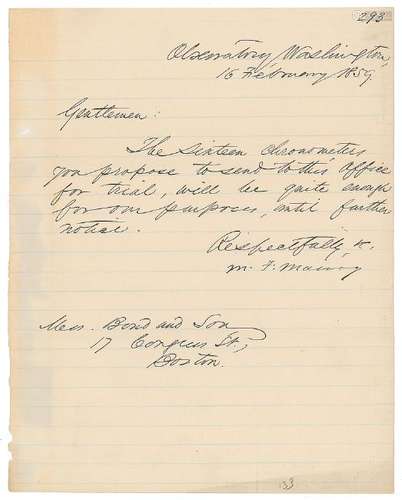 293
Observatory Washington,
16 February 1859
Gentlemen:
The Sixteen Chronometers
you propose to send to this Office
for trial, will be quite enough
for our purposes, until further
notice.
Respectfully, &c.
M. F. Maury
Mess. Bond and Son
17 Congress St.,
Boston.
133